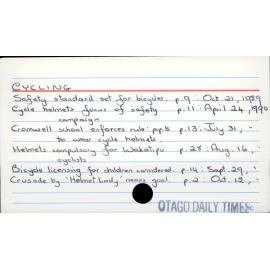 CYCLING
Safety standard set for bicycles. p.9 : Oct. 21, 1989
Cycle helmets focus of safety p.11 : April 24, 1990
campaign
Cromwell school enforces rule: pupils p.13 : July 31, "
to wear cycle helmets.
Helmets compulsory for Wakatipu p.28 : Aug. 16, "
cyclists
Bicycle licensing for children considered. p.14 : Sept. 29, "
Crusade by 'Helmet Lady' nears goal p.2 : Oct. 12, "
OTAGO DAILY TIMES